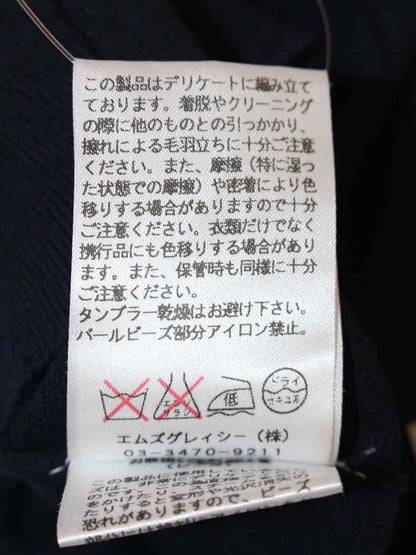 この製品はデリケートに編み立て
ております。着脱やクリーニング
の際に他のものとの引っかかり、
擦れによる毛羽立ちに十分ご注意
ください。また、摩擦（特に湿っ
た状態での摩擦）や密着により色
移りする場合がありますので十分
ご注意ください。衣類だけでなく
携行品にも色移りする場合があり
ます。また、保管時も同様に十分
ご注意ください。
タンブラー乾燥はお避け下さい。
パールビーズ部分アイロン禁止。
エンソ
サラシ
低
ドライ
セキユ系
エムズグレイシー（株）
03-3470-9211
この製品に使用し
は、非常に
のですり
をかけたり
すると変形や光沢消失
恐れがありますので、ビーズ